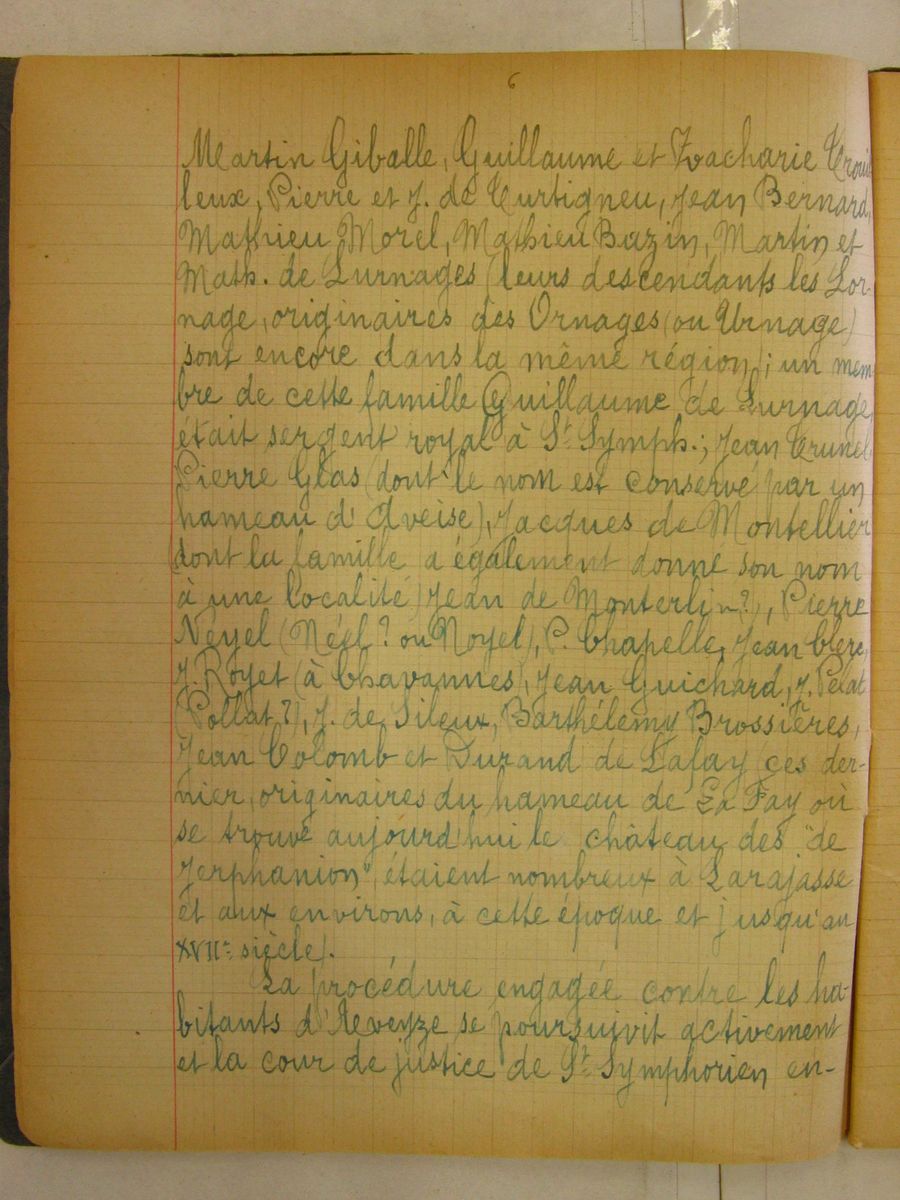 6
Martin Giballe, Guillaume et Zacharie Trouil
leux, Pierre et J. de Curtigneu, Jean Bernard,
Mathieu Morel, Mathieu Bazin, Martin et
Math. de Lurnages (leurs descendants les Lor-
nage, originaires des Ornages (ou Urnage)
sont encore dans la même région); un mem-
bre de cette famille Guillaume de Lurnage,
était sergent royal à St. Symph.; Jean Crunel
Pierre Glas (dont le nom est conservé par un
hameau d'Aveise), Jacques de Montellier
(dont la famille a également donné son nom
à une localité) Jean de Monterlin?), Pierre
Neyel (Néel? ou Noyel), P. Chapelle, Jean Clerc,
J. Royet (à Chavannes), Jean Guichard, J. Pelat
(Pollat?), J. de Sileux, Barthélemy Brossières,
Jean Colomb et Durand de Lafay (ces der-
nier, originaires du hameau de La Fay où
se trouve aujourd'hui le château des "de
Jerphanion", étaient nombreux à Larajasse
et aux environs, à cette époque et jusqu'au
XVIIe siècle).
La procédure engagée contre les ha-
bitants d'Aeveyze se poursuivit activement
et la cour de justice de St. Symphorien en-